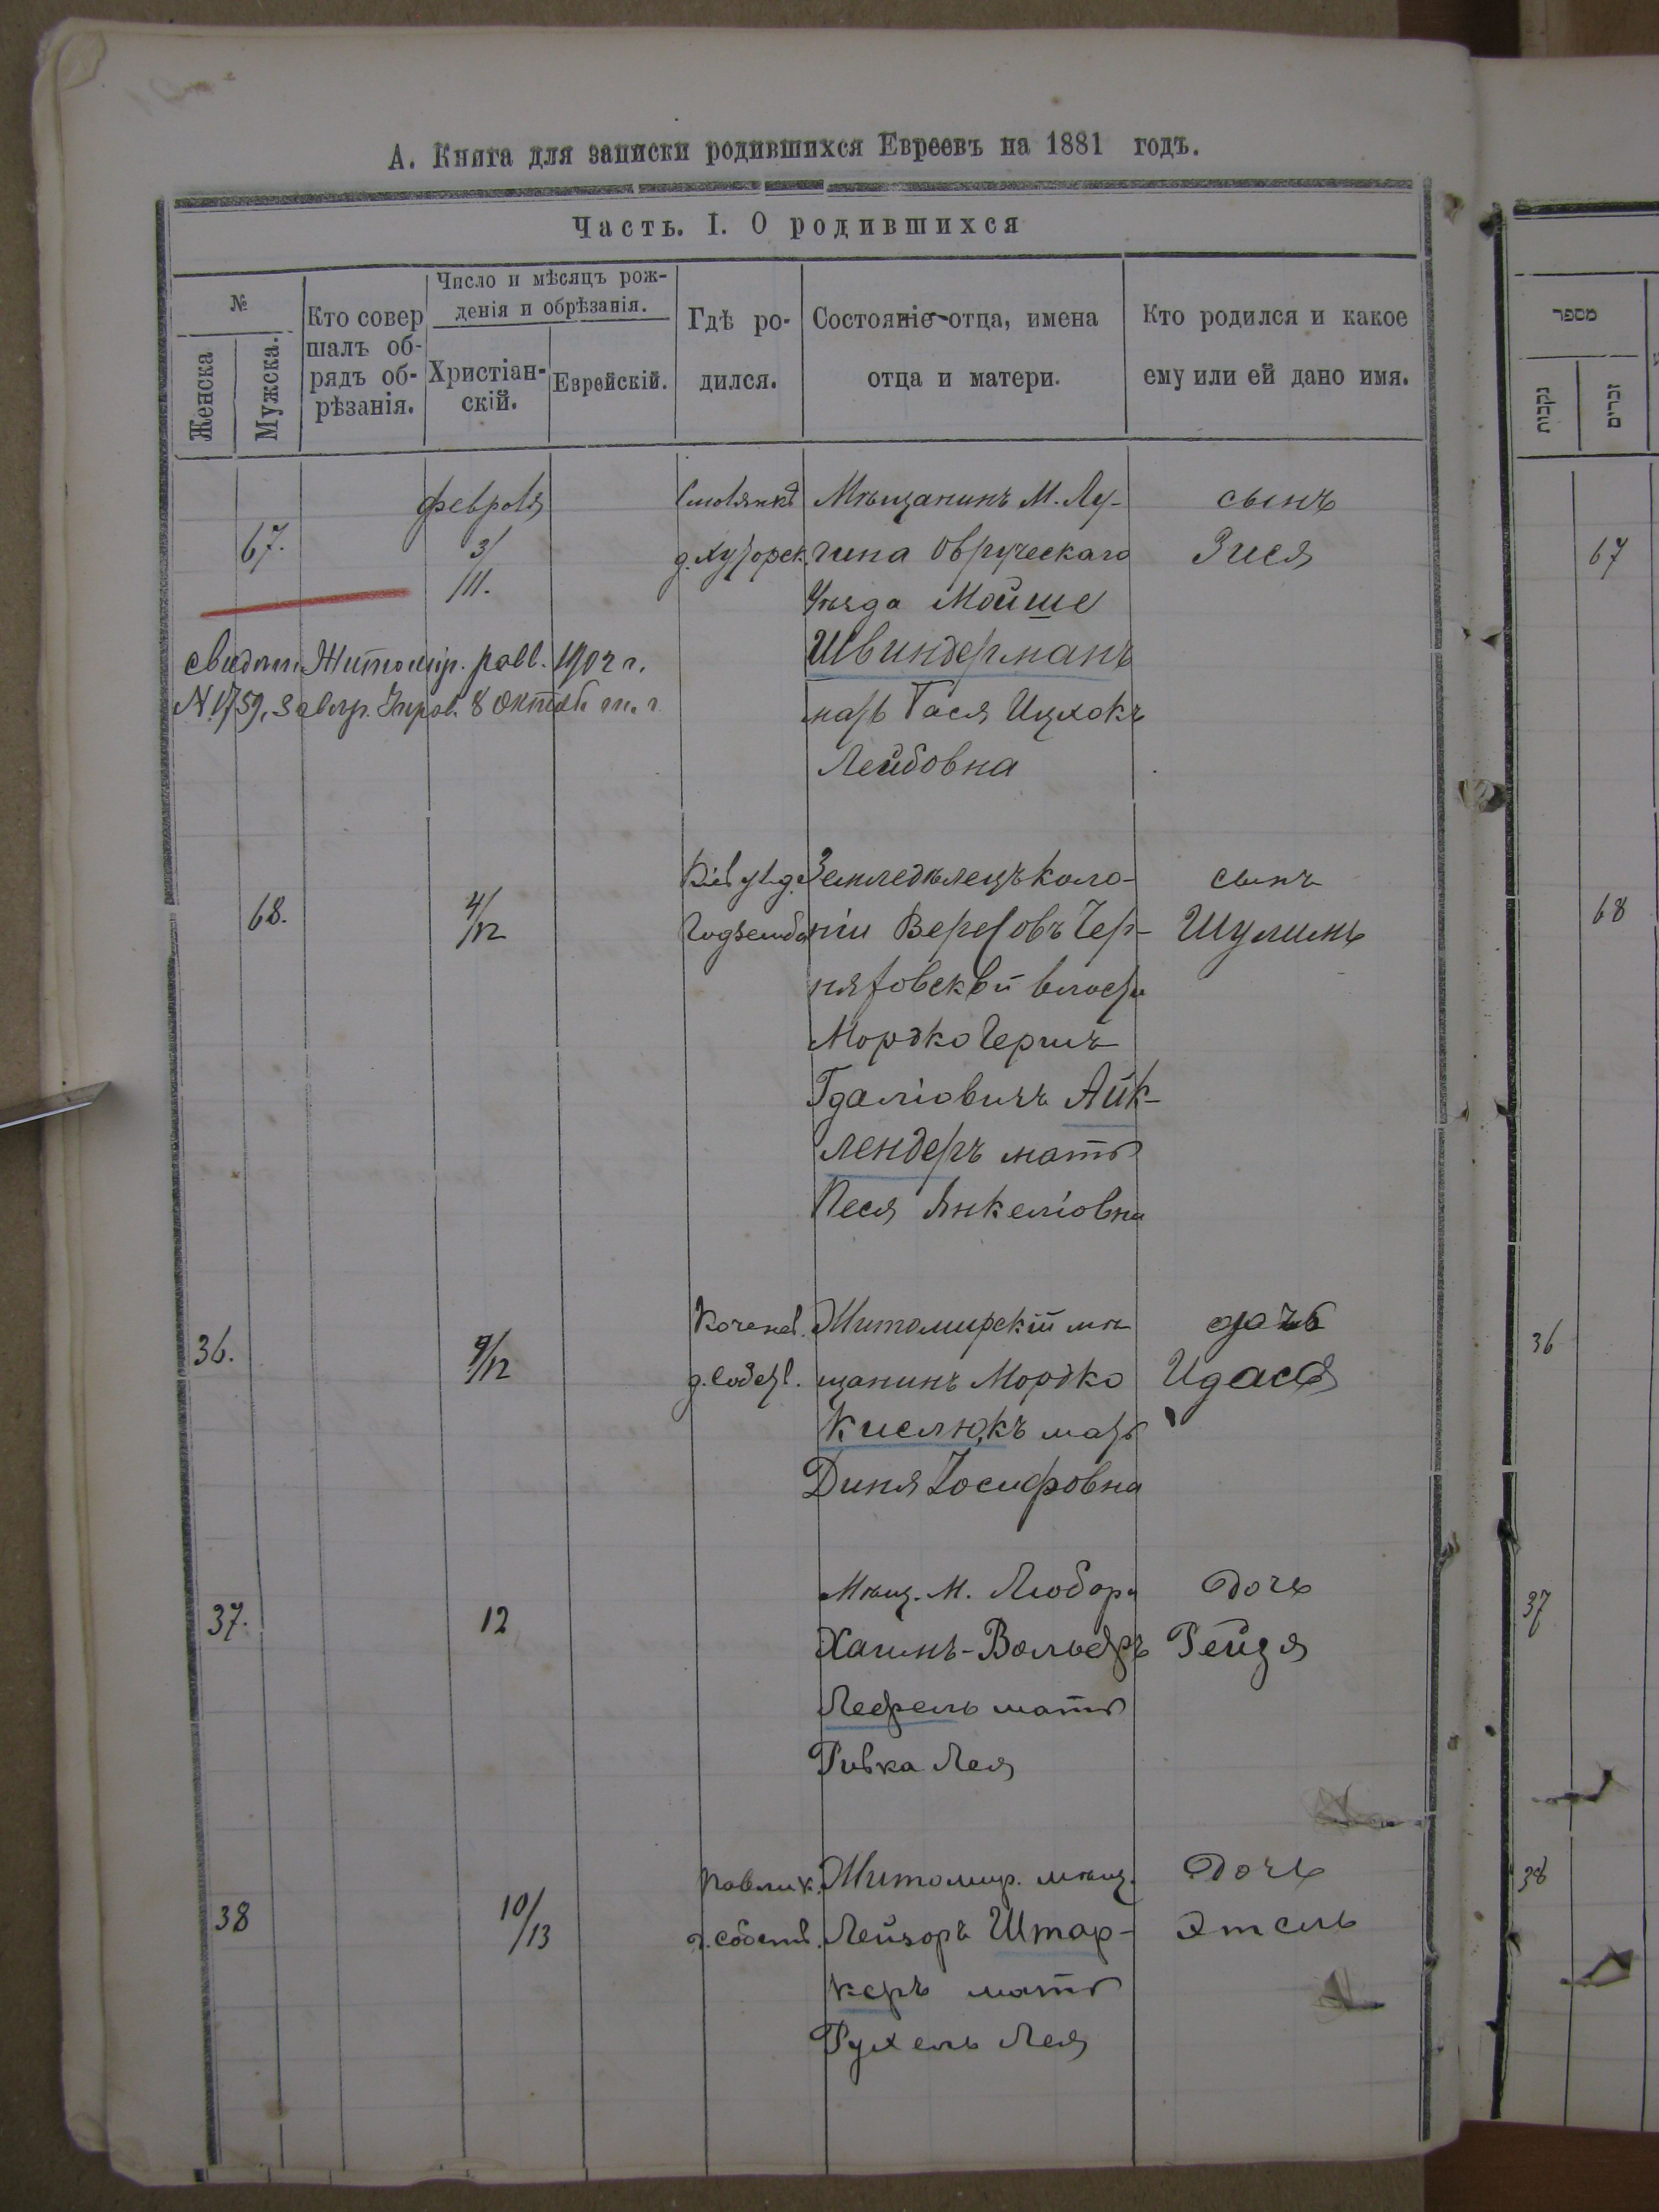 А. Книга для записки родившихся Евреевъ на 1881 годъ.
Часть. I. О родившихся
№
Женска
Мужска.
Кто совер
шалъ об-
рядъ об-
рѣзанія.
Число и мѣсяцъ рож-
денія и обрѣзанія.
Христіан-
скій.
Еврейскій.
Гдѣ ро-
дился.
Состояніе отца, имена
отца и матери.
Кто родился и какое
ему или ей дано имя.
67.
февраля
3/
11.
Мѣщанинъ М. Лу-
гина Овруческаго
Уѣзда Мойше
Швиндерманъ
мать Гася Ицхокъ
Лейбовна
сынъ
Зися
свидѣт. Житомір. равв. 1902 г.
68.
4/
12
Земледѣлецъ коло-
ніи Вересовъ Чер-
няховской
Мордко Гершъ
Гдаліовичъ Айк-
лендеръ мать
Песя Янкеліовна
сынъ
Шулимъ
36.
9/12
Житомирскій мѣ
щанинъ Мордко
Кислюкъ мать
Диня Іосифовна
дочь
Идася
37.
12
Мѣщ. М. Любара
Хаимъ-Вольфъ
Лефель мать
Ривка Лея
дочь
Рейзя
38
10/
13
Павлик.
д. собств.
Житомир. мѣщ.
Лейзоръ Штар-
керъ мать
Рухель Лея
дочь
Этель
מספר
נקבות
זכרים
67
68
36
37
38